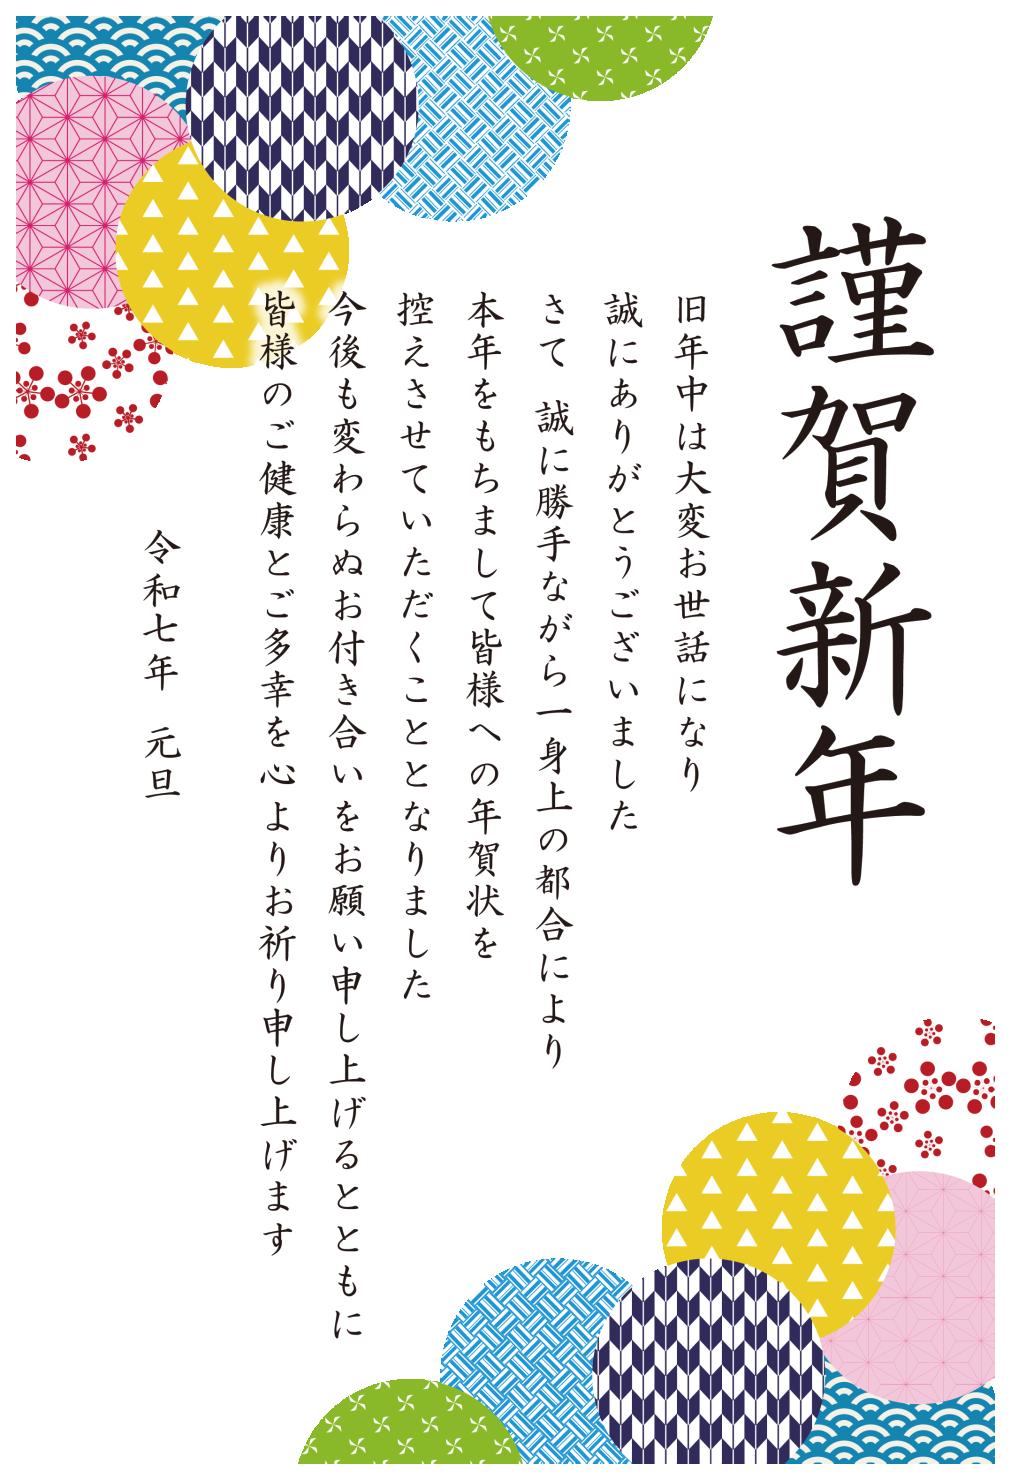 謹賀新年
旧年中は大変お世話になり
誠にありがとうございました
さて　誠に勝手ながら一身上の都合により
本年をもちまして皆様への年賀状を
控えさせていただくこととなりました
今後も変わらぬお付き合いをお願い申し上げるとともに
皆様のご健康とご多幸を心よりお祈り申し上げます
令和七年　元旦